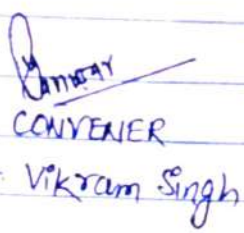 CONVENER
Vikram Singh